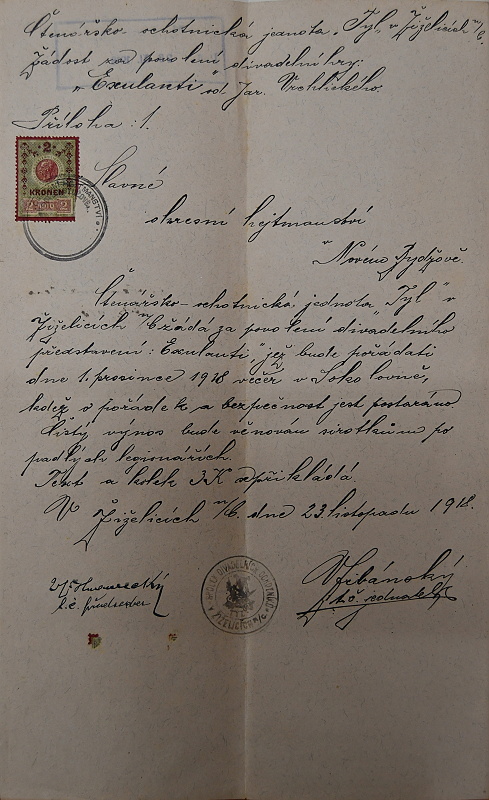 Čtenářsko-ochotnická jednota „Tyl" v Žiželicích n/C.
žádost za povolení divadelní hry:
„Exulanti" od Jar. Vrchlického.
Příloha: 1.
2
KRONEN
1910
Slavné
okresní hejtmanství
v Novém Bydžově.
Čtenářsko-ochotnická jednota „Tyl" v
Žiželicích n/C žádá za povolení divadelního
představení: „Exulanti", jež bude pořádati
dne 1. prosince 1918 večer v Sokolovně,
kdež o pořádek a bezpečnost jest postaráno.
Čistý výnos bude věnován sirotkům po
padlých legionářích.
Text a kolek 3 K se přikládá.
V Žiželicích n/C. dne 23. listopadu 1918.
t. č. předseda
t. č. jednatel